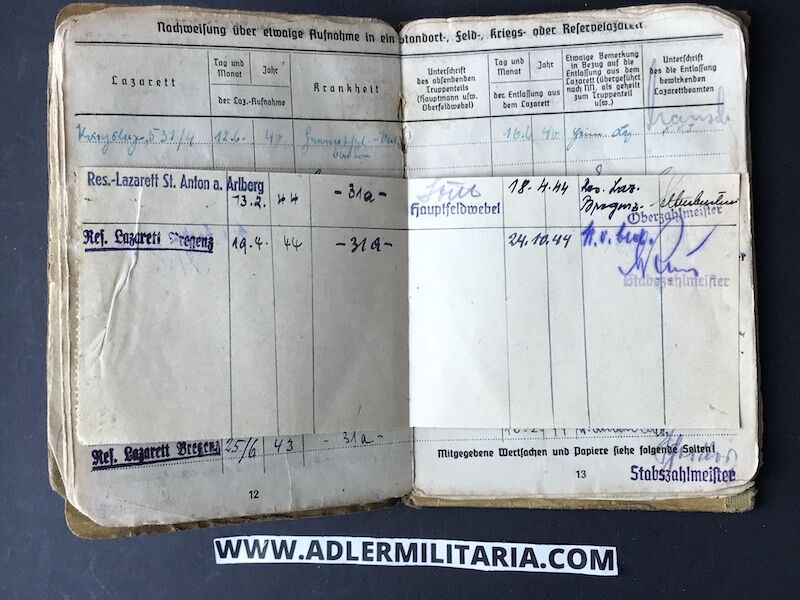 Nachweisung über etwaige Aufnahme in ein Standort-, Feld-, Kriegs- oder Reservelazarett
Lazarett
Tag und Monat
Jahr
der Laz.-Aufnahme
Krankheit
Unterschrift des absendenden Truppenteils (Hauptmann usw. Oberfeldwebel)
Tag und Monat
Jahr
der Entlassung aus dem Lazarett
Etwaige Bemerkung in Bezug auf die Entlassung aus dem Lazarett (übergeführt nach NN. als geheilt zum Truppenteil usw.)
Unterschrift des die Entlassung bewirkenden Lazarettbeamten
531/4 12.6. 40 16.6. 40
Res.-Lazarett St. Anton a. Arlberg
13.2. 44 -31a- 18.4.44 Res. Laz. Bregenz
Hauptfeldwebel
Oberzahlmeister
Res. Lazarett Bregenz 19.4. 44 -31a- 24.10.44
Stabszahlmeister
Res. Lazarett Bregenz 25/6 43 -31a-
Mitgegebene Wertsachen und Papiere siehe folgende Seiten!
Stabszahlmeister
12
13
WWW.ADLERMILITARIA.COM